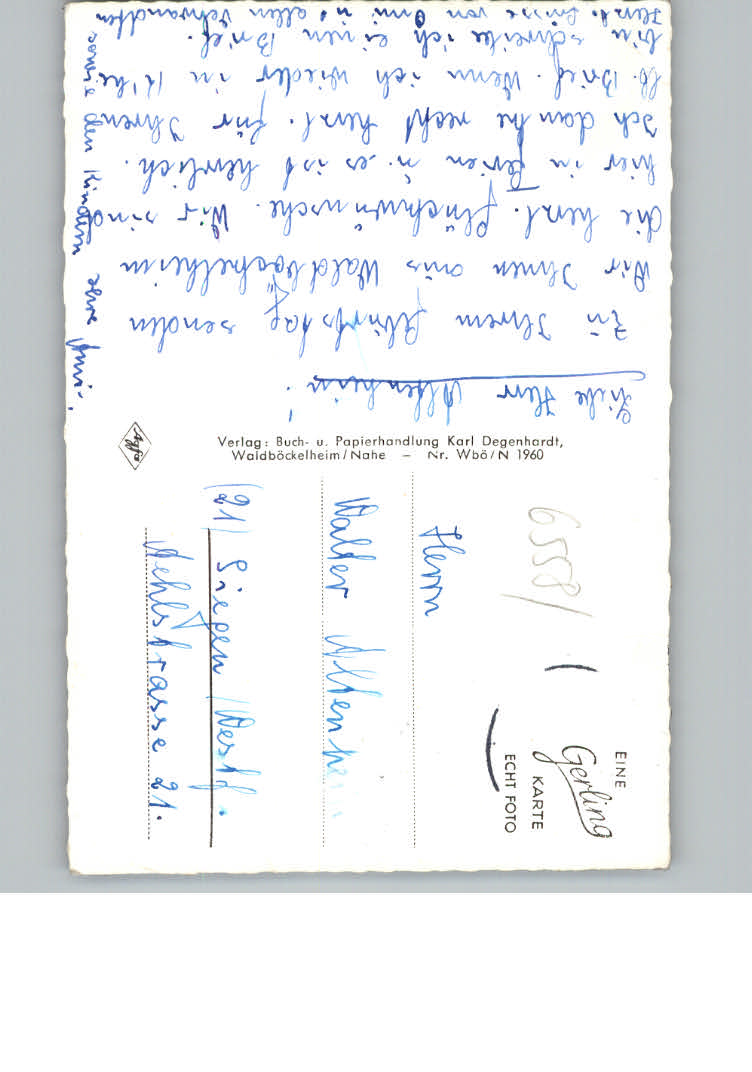 Liebe Herr Altenheim!
Zu Ihrem Geburtstag senden
Wir Ihnen aus Waldböckelheim
die herzl. Glückwünsche. Wir sind
hier in Ferien u. es ist herrlich.
Ich danke recht herzl. für Ihren
lb. Brief. Wenn ich wieder in K'he
bin schreibe ich einen Brief.
Herzl. Grüsse von Omi u. allen Verwandten
sowie den Kindern Ihre
Verlag: Buch- u. Papierhandlung Karl Degenhardt,
Waldböckelheim/Nahe – Nr. Wbö/N 1960
Agfa
EINE
Gerling
KARTE
ECHT FOTO
6558/
Herrn
Walter Altenheim
(21) Siegen/Westf.
21.